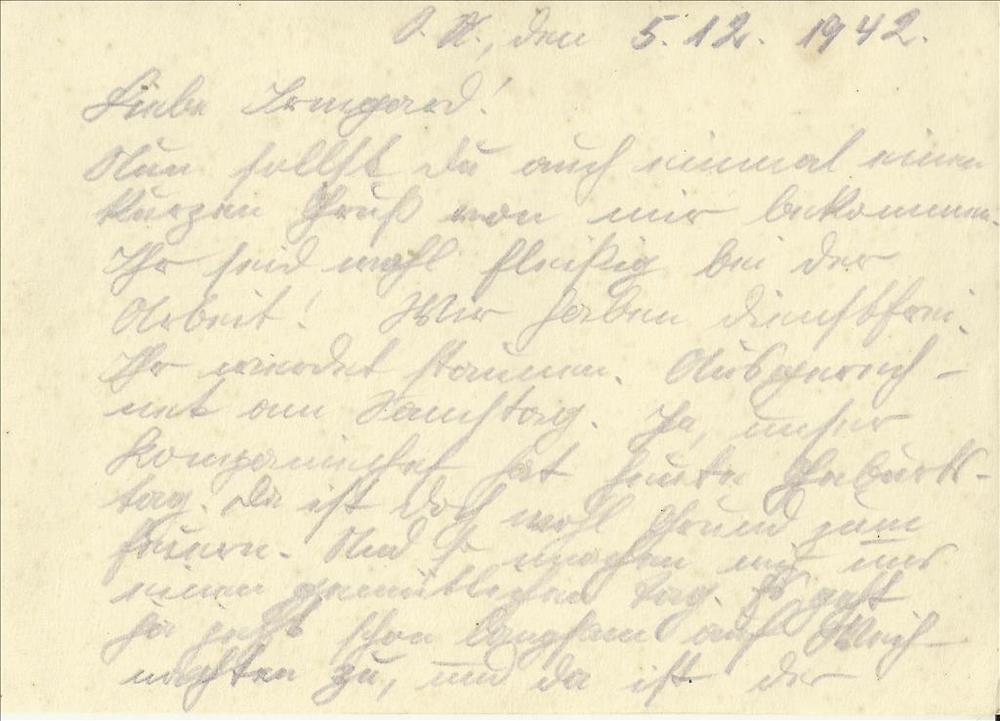 O.U., den 5.12.1942.
Liebe Irmgard!
Nun sollst Du auch einmal einen
kurzen Gruß von mir bekommen.
Ihr seid wohl fleißig bei der
Arbeit! Wir haben dienstfrei.
Ihr werdet staunen. Ausgerech-
net am Samstag. Ja, unser
Kompaniechef hat heute Geburts-
tag. Da ist doch wohl Grund zum
feiern. Und so machen wir uns
einen gemütlichen Tag. Es geht
ja jetzt schon langsam auf Weih-
nachten zu, und da ist der